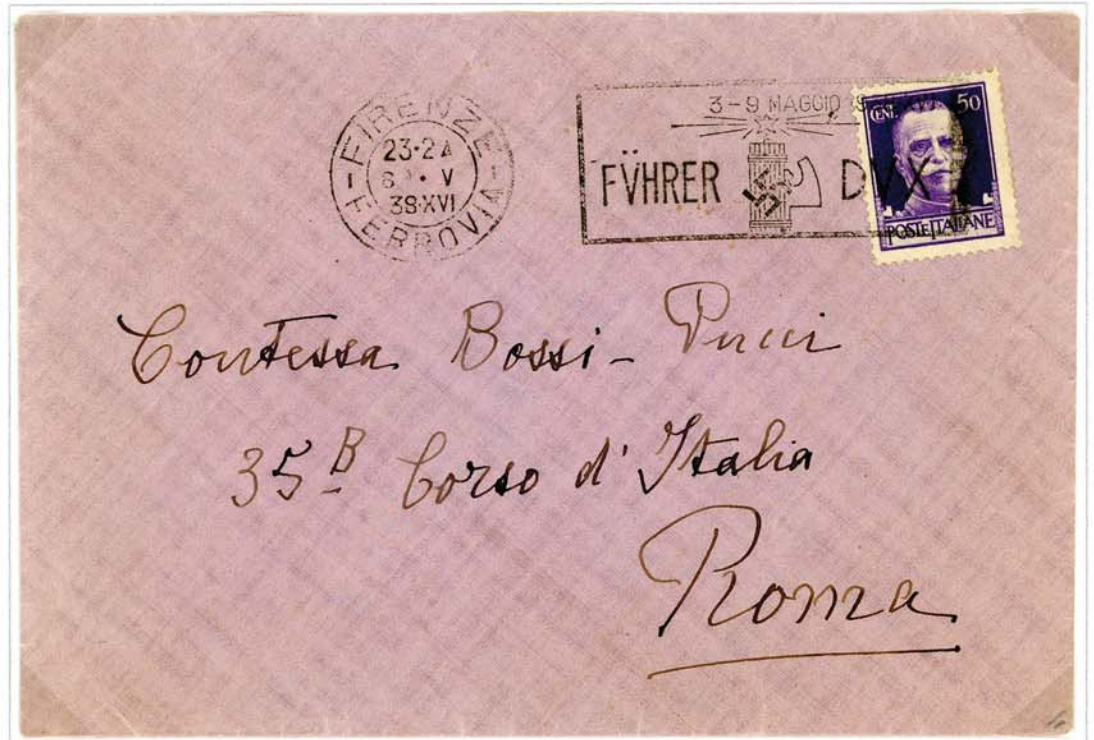 FIRENZE
23·24
V
38·XVI
FERROVIA
3-9 MAGGIO
FVHRER DVX
CENT. 50
POSTE ITALIANE
Contessa Bossi - Pucci
35B Corso d'Italia
Roma